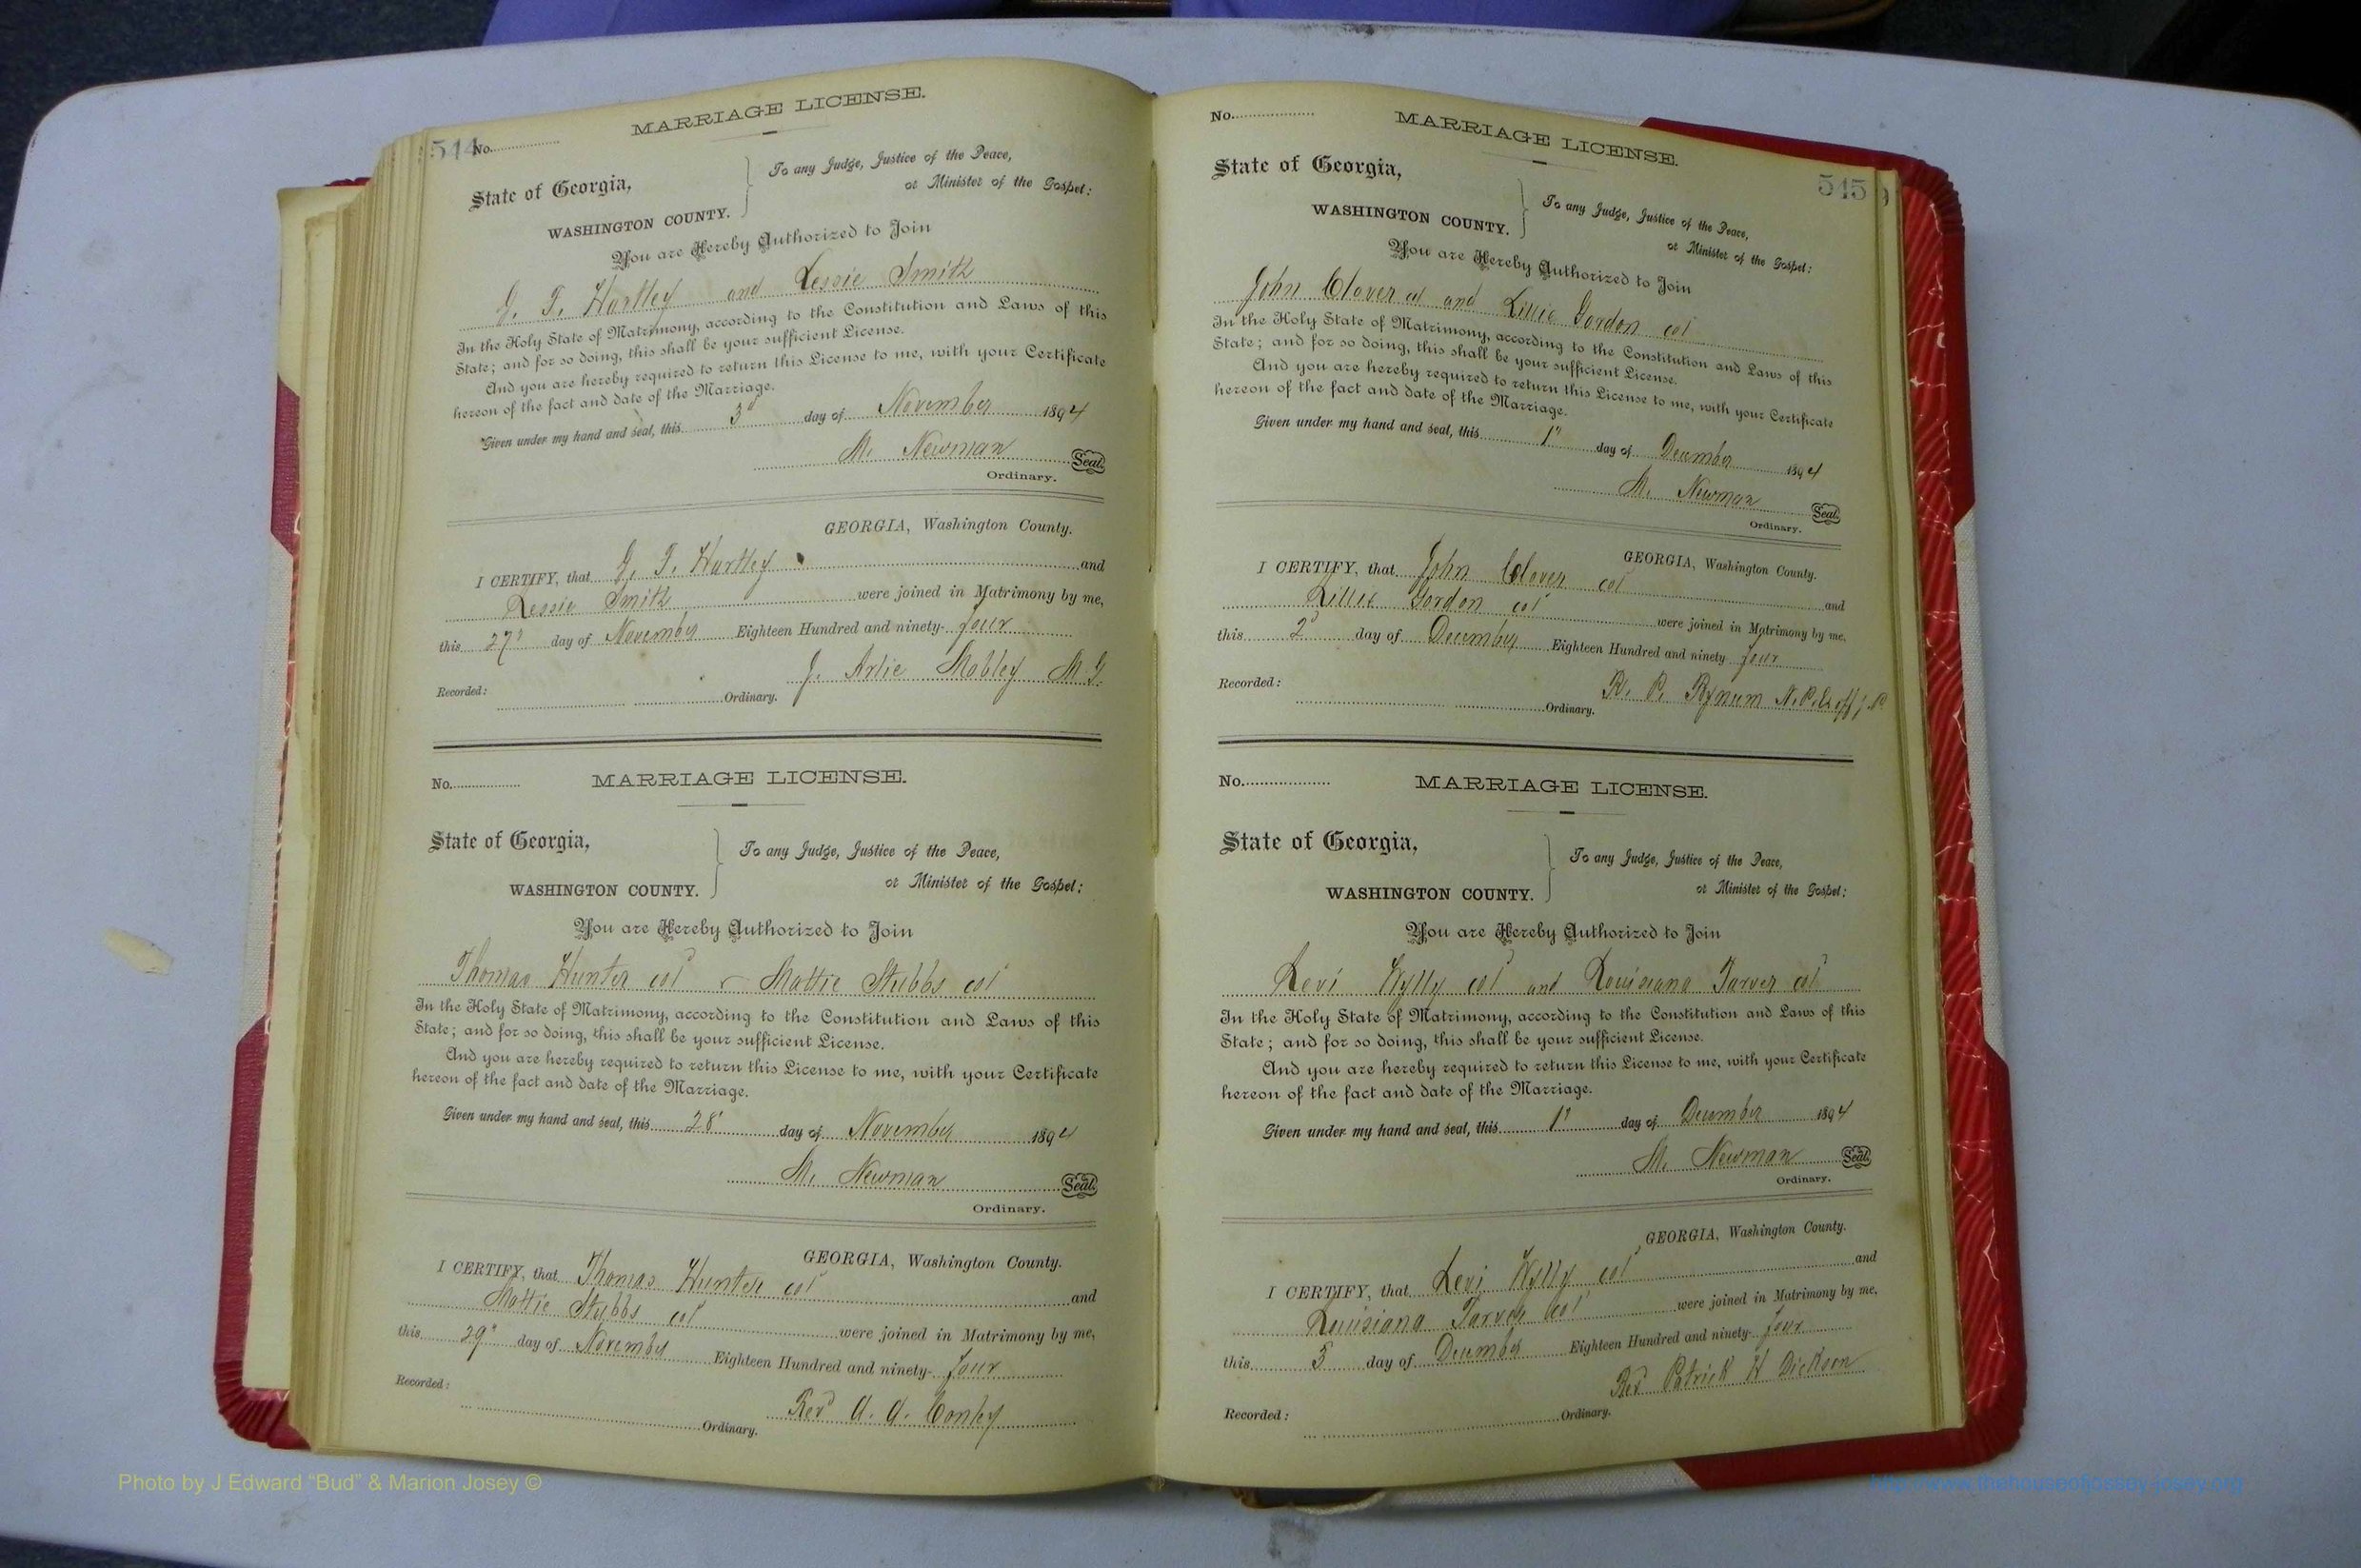 514
No.
MARRIAGE LICENSE.
State of Georgia,
WASHINGTON COUNTY.
To any Judge, Justice of the Peace,
or Minister of the Gospel:
You are Hereby Authorized to Join
G. T. Hartley and Lessie Smith
In the Holy State of Matrimony, according to the Constitution and Laws of this
State; and for so doing, this shall be your sufficient License.
And you are hereby required to return this License to me, with your Certificate
hereon of the fact and date of the Marriage.
Given under my hand and seal, this 3d day of November 1894
M. Newman Seal.
Ordinary.
GEORGIA, Washington County.
I CERTIFY, that G. T. Hartley and
Lessie Smith were joined in Matrimony by me,
this 27" day of November Eighteen Hundred and ninety- four
J. Arlie Mobley M. G.
Recorded: Ordinary.
No.
MARRIAGE LICENSE.
State of Georgia,
WASHINGTON COUNTY.
To any Judge, Justice of the Peace,
or Minister of the Gospel:
You are Hereby Authorized to Join
Thomas Hunter col & Mattie Stubbs col
In the Holy State of Matrimony, according to the Constitution and Laws of this
State; and for so doing, this shall be your sufficient License.
And you are hereby required to return this License to me, with your Certificate
hereon of the fact and date of the Marriage.
Given under my hand and seal, this 28" day of November 1894
M. Newman Seal.
Ordinary.
GEORGIA, Washington County.
I CERTIFY, that Thomas Hunter col and
Mattie Stubbs col were joined in Matrimony by me,
this 29" day of November Eighteen Hundred and ninety- four
Rev A. A. Conley
Recorded: Ordinary.
No.
MARRIAGE LICENSE.
515
State of Georgia,
WASHINGTON COUNTY.
To any Judge, Justice of the Peace,
or Minister of the Gospel:
You are Hereby Authorized to Join
John Clover col and Lillie Gordon col
In the Holy State of Matrimony, according to the Constitution and Laws of this
State; and for so doing, this shall be your sufficient License.
And you are hereby required to return this License to me, with your Certificate
hereon of the fact and date of the Marriage.
Given under my hand and seal, this 1" day of December 1894
M. Newman Seal.
Ordinary.
GEORGIA, Washington County.
I CERTIFY, that John Clover col and
Lillie Gordon col were joined in Matrimony by me,
this 2d day of December Eighteen Hundred and ninety four
R. P. Bynum N. P. & Ex off J. P.
Recorded: Ordinary.
No.
MARRIAGE LICENSE.
State of Georgia,
WASHINGTON COUNTY.
To any Judge, Justice of the Peace,
or Minister of the Gospel:
You are Hereby Authorized to Join
Levi Wylly col and Louisiana Tarver col
In the Holy State of Matrimony, according to the Constitution and Laws of this
State; and for so doing, this shall be your sufficient License.
And you are hereby required to return this License to me, with your Certificate
hereon of the fact and date of the Marriage.
Given under my hand and seal, this 1" day of December 1894
M. Newman Seal.
Ordinary.
GEORGIA, Washington County.
I CERTIFY, that Levi Wylly col and
Louisiana Tarver col were joined in Matrimony by me,
this day of December Eighteen Hundred and ninety- four
Rev Patrick H Dickson
Recorded: Ordinary.
Photo by J Edward “Bud” & Marion Josey ©
http://www.thehouseofjossey-josey.org